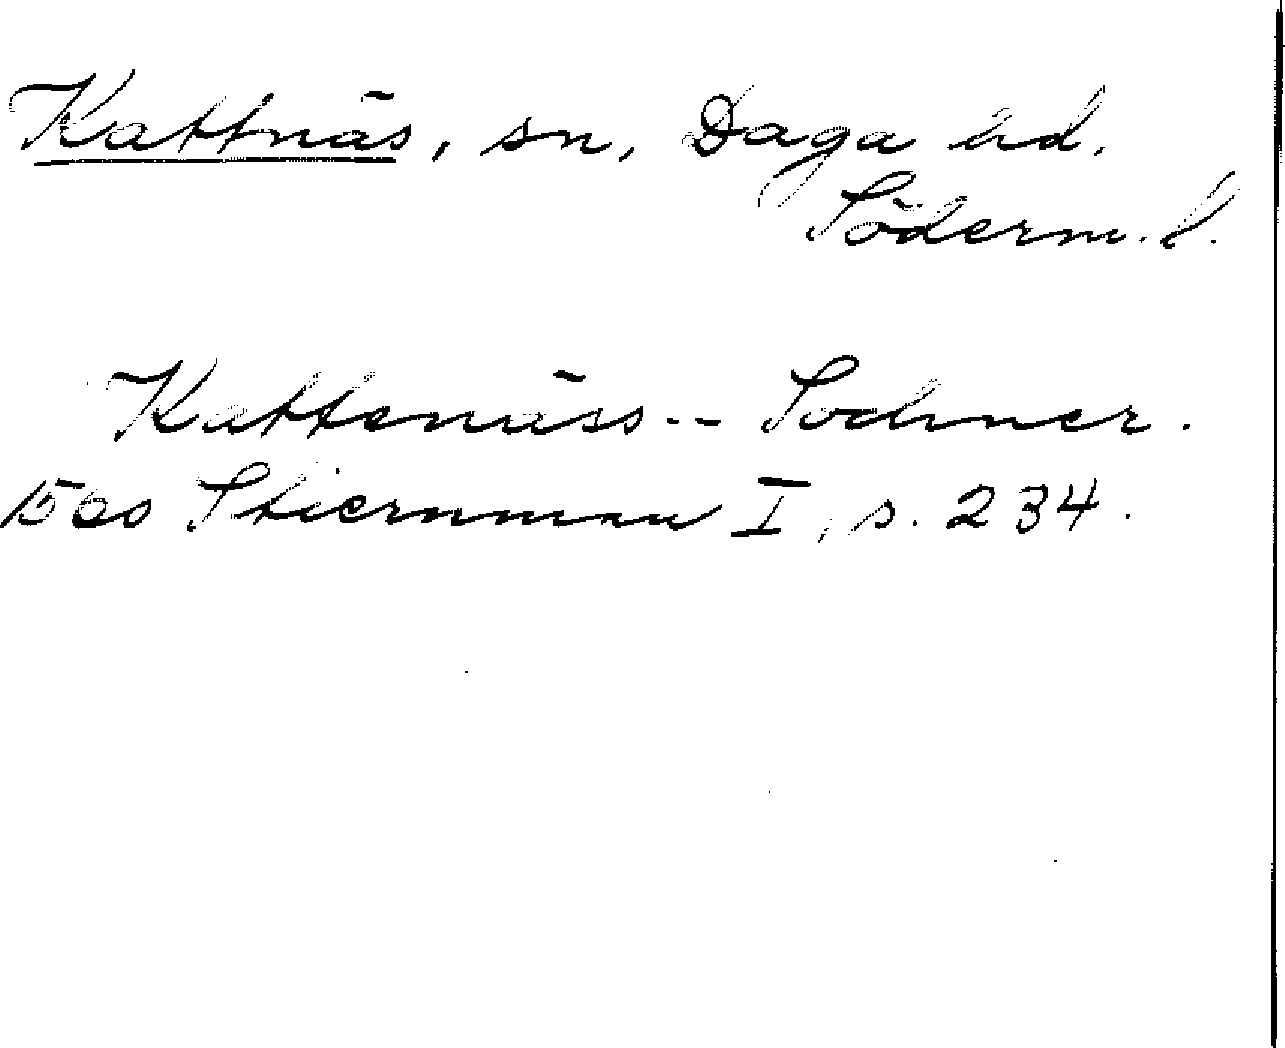 Kattnäs, sn, Daga hd.
Söderm. l.
Kattenäss-- Sochner.
1560 Stiernman I, s. 234.